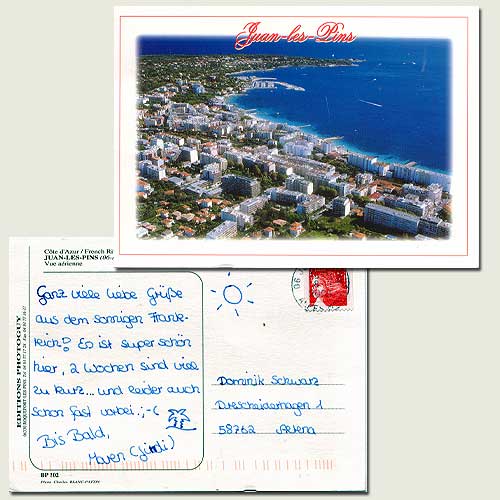 Juan-les-Pins
Côte d'Azur / French Ri
JUAN-LES-PINS (06-
Vue aérienne
EDITIONS PHOTOGUY
Ganz viele liebe Grüße
aus dem sonnigen Frank-
reich! Es ist super schön
hier, 2 Wochen sind viel
zu kurz... und leider auch
schon fast vorbei ;-(
Bis Bald,
Maren
Dominik Schwarz
Drescheiderhagen 1
58762 Altena
BP 102
Photo Charles BLANC-PATTIN